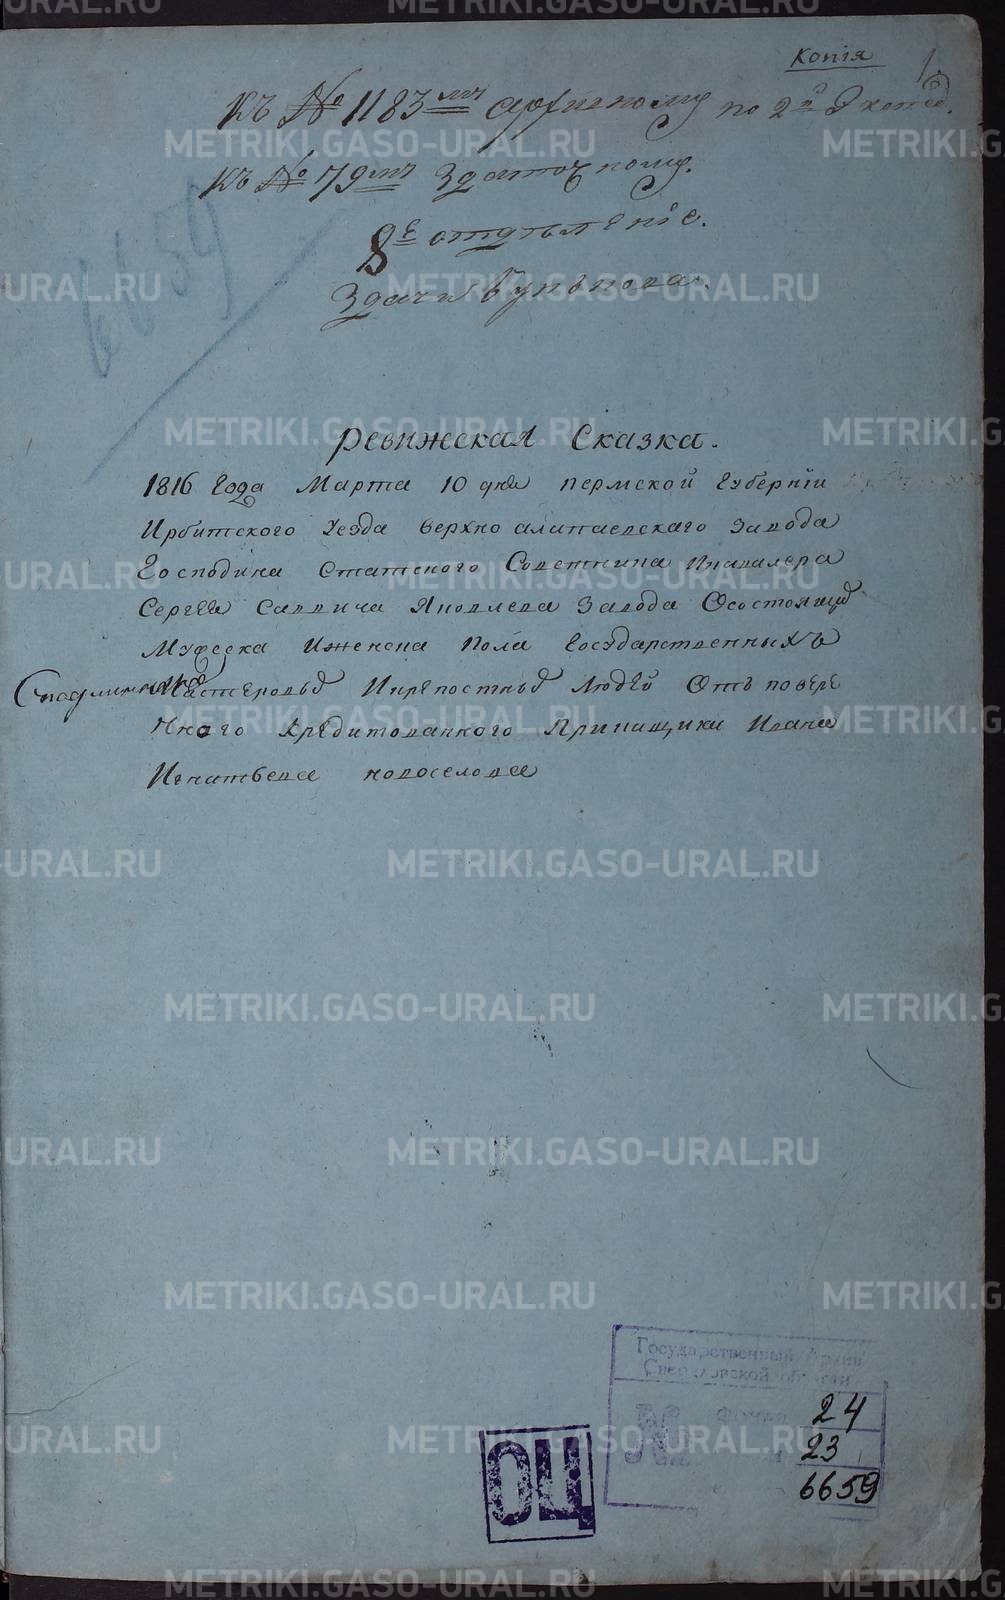 Копія
1
Къ № 1183му архивному по 2й
Къ № 79му Здаточному.
8е отдѣленіе.
Здачи
6659
Ревижская Сказка.
1816 Года Марта 10 дня Пермской Губерніи
Ирбитского Уезда Верхно алапаевскаго Завода
Господина Статского Советника Икавалера
Сергея Саввича Яковлева Завода Осостоящи
Мужеска Иженска Пола Государственныхъ
Мастеровы Икрепостны людей Отъ повере
нного кредитованного Прикащика Ивана
Игнатьева новоселова
Государственный Архив
Свердловской области
фонд 24
23
6659
ОЦ
METRIKI.GASO-URAL.RU